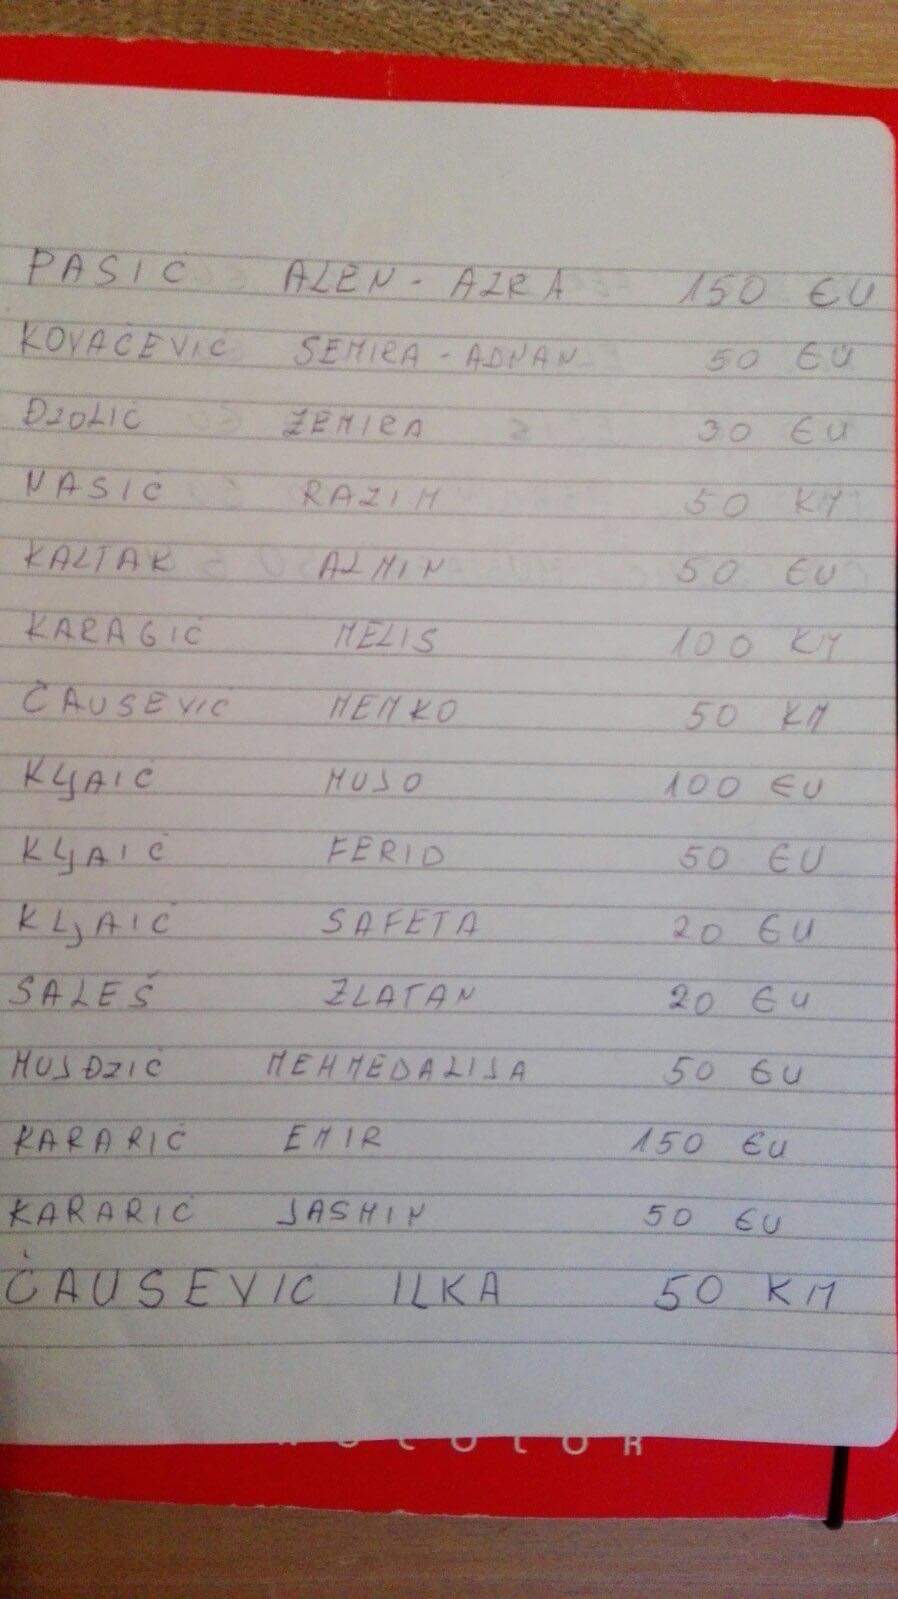 PASIĆ ALEN - AZRA 150 EU
KOVAČEVIĆ SEMIRA - ADNAN 50 EU
DZOLIĆ ZEMIRA 30 EU
NASIĆ RAZIM 50 KM
KALTAK ALMIN 50 EU
KARAGIĆ MELIS 100 KM
ČAUSEVIĆ MEMKO 50 KM
KLJAIĆ MUJO 100 EU
KLJAIĆ FERID 50 EU
KLJAIĆ SAFETA 20 EU
SALEŠ ZLATAN 20 EU
MUJDZIĆ MEHMEDALIJA 50 EU
KARARIĆ EMIR 150 EU
KARARIĆ JASMIN 50 EU
ČAUSEVIĆ ILKA 50 KM